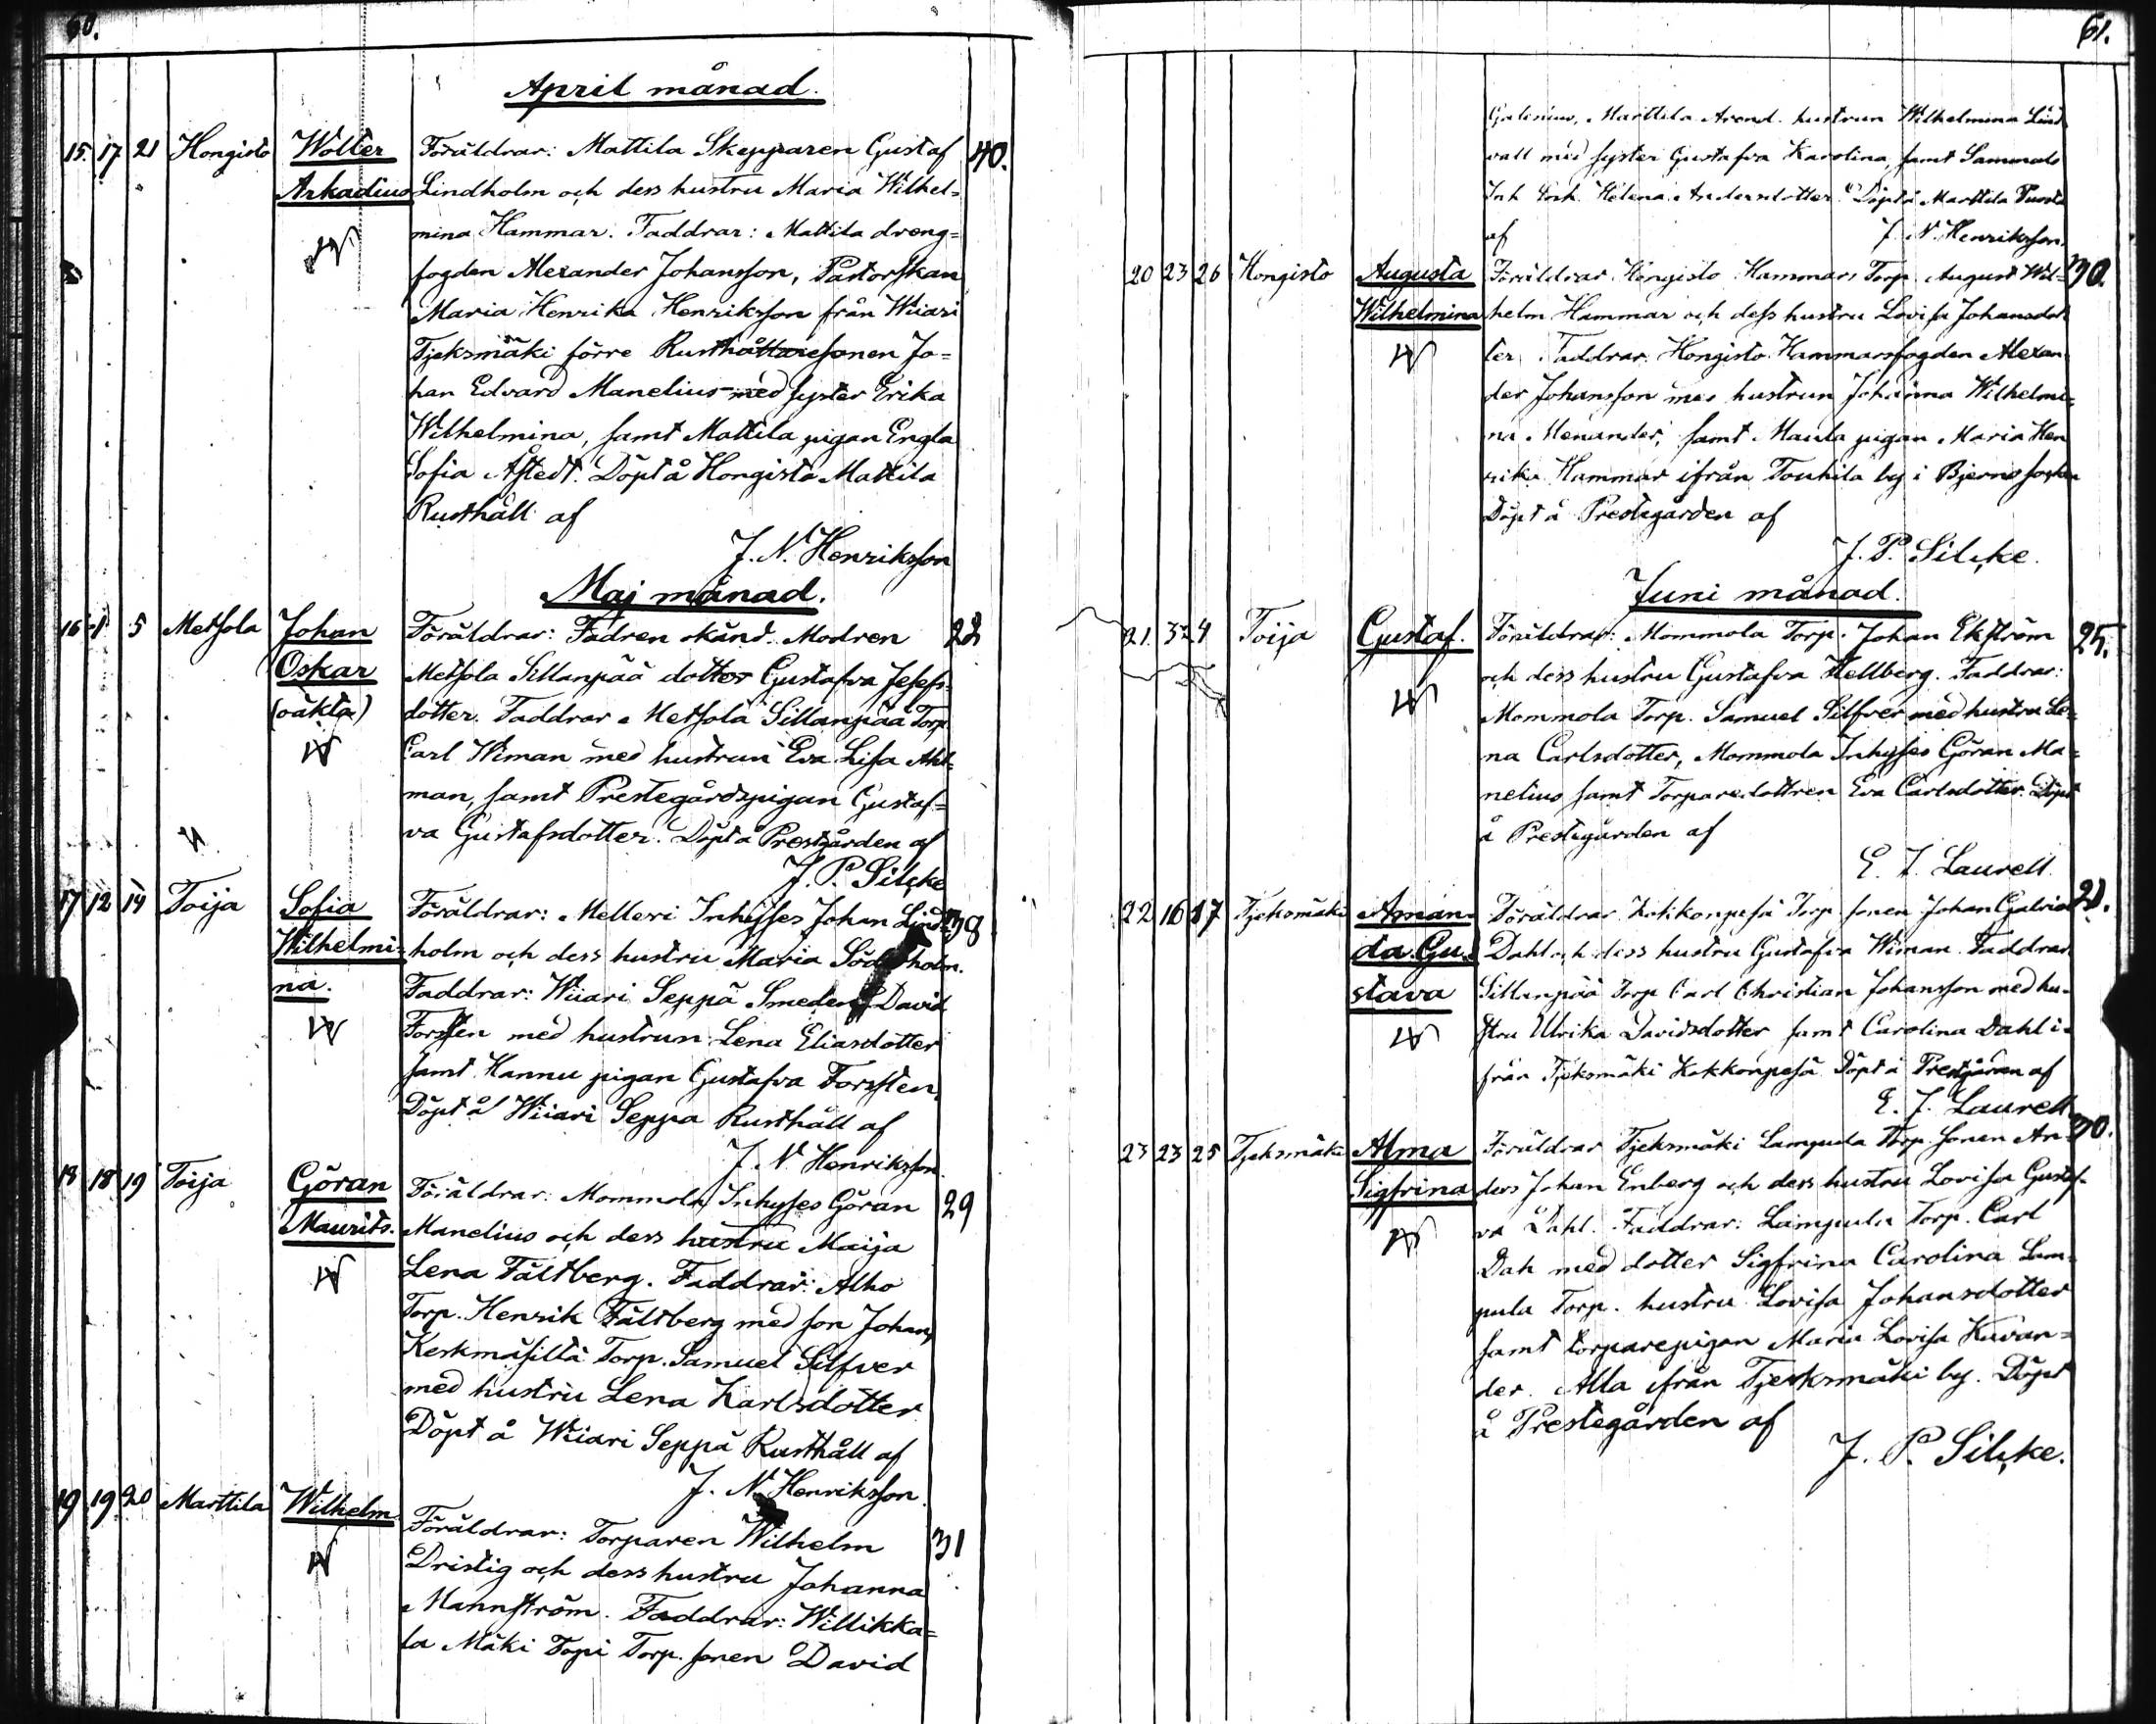 60.
April månad.
15. 17 21 Hongisto Wolter Föräldrar: Mattila Skepparen Gustaf 40.
Arkadius Lindholm och dess hustru Maria Wilhel=
mina Hammar. Faddrar: Mattila dreng=
fogden Alexander Johansson, Pastorskan
Maria Henrika Henriksson från Wiiari
Tjeksmäki förre Rusthållaresonen Jo=
han Edvard Manelius med syster Erika
Wilhelmina, samt Mattila pigan Engla
Sofia Åstedt. Döpt å Hongisto Mattila
Rusthåll af
J. N. Henriksson
Maj månad.
16 1 5 Metsola Johan Föräldrar: Fadren okänd. Modren 22
Oskar Metsola Sillanpää dotter Gustafva Josefs=
(oäkta) dotter. Faddrar Metsola Sillanpää Torp.
Carl Wiman med hustrun Eva Lisa Ahl=
man, samt Prestegårdspigan Gustaf=
va Gustafsdotter. Döpt å Prestgården af
J. P. Silcke
17 12 14 Toija Sofia Föräldrar: Melleri Inhyses Johan Lind= 38
Wilhelmi= holm och dess hustru Maria Söderholm.
na. Faddrar: Wiiari Seppä Smeden David
Forssten med hustrun Lena Eliasdotter
samt Hannu pigan Gustafva Forssten,
Döpt å Wiiari Seppä Rusthåll af
J. N. Henriksson
18 18 19 Toija Göran Föräldrar: Mommola Inhyses Göran 29
Maurits. Manelius och dess hustru Maija
Lena Fältberg. Faddrar: Alho
Torp. Henrik Fältberg med son Johan,
Keskmäsillä Torp. Samuel Silfver
med hustru Lena Karlsdotter
Döpt å Wiiari Seppä Rusthåll af
J. N. Henriksson.
19 19 20 Marttila Wilhelm Föräldrar: Torparen Wilhelm 31
Dristig och dess hustru Johanna
Mannström. Faddrar: Willikka=
la Mäki Topi Torp. sonen David
61.
Galenius, Marttila Arend. hustrun Wilhelmina Lind
vall med syster Gustafva Karolina, samt Sammalo
Inh Enk. Helena Andersdotter. Döpt å Marttila
af J. N. Henriksson.
20 23 26 Hongisto Augusta Föräldrar Hongisto Hammars Torp. August Wil= 30.
Wilhelmina helm Hammar och dess hustru Lovisa Johansdot
ter. Faddrar Hongisto Hammarsfogden Alexan
der Johansson med hustrun Johanna Wilhelmi=
na Menander, samt Maula pigan Maria Hen
rika Hammar ifrån Touhila by i Bjerno socken
Döpt å Prestegården af
J. P. Silcke.
Juni månad.
21. 3 4 Toija Gustaf. Föräldrar: Mommola Torp. Johan Ekström 25.
och dess hustru Gustafva Hellberg. Faddrar:
Mommola Torp. Samuel Silfver med hustru Le=
na Carlsdotter, Mommola Inhyses Göran Ma=
nelius samt Torparedottren Eva Carlsdotter. Döpt
å Prestegården af
E. J. Laurell.
22 16 17 Tjeksmäki Aman= Föräldrar Kokkonpesä Torp sonen Johan Gabriel 21.
da Gu= Dahl och dess hustru Gustafva Wiman. Faddrar
stava Sillanpää Torp Carl Christian Johansson med hu=
stru Ulrika Davidsdotter samt Carolina Dahl i=
från Tjeksmäki Kokkonpesä Döpt å Prestgården af
E. J. Laurell
23 23 25 Tjeksmäki Alma Föräldrar Tjeksmäki Lampula Torp. sonen An= 30.
Sigfrina ders Johan Enberg och dess hustru Lovisa Gustaf=
va Dahl. Faddrar: Lampula Torp. Carl
Dah med dotter Sigfrina Carolina Lam=
pula Torp. hustru Lovisa Johansdotter
samt torparepigan Maria Lovisa Kuvan=
der. Alla ifrån Tjeksmäki by. Döpt
å Prestegården af
J. P. Silcke.